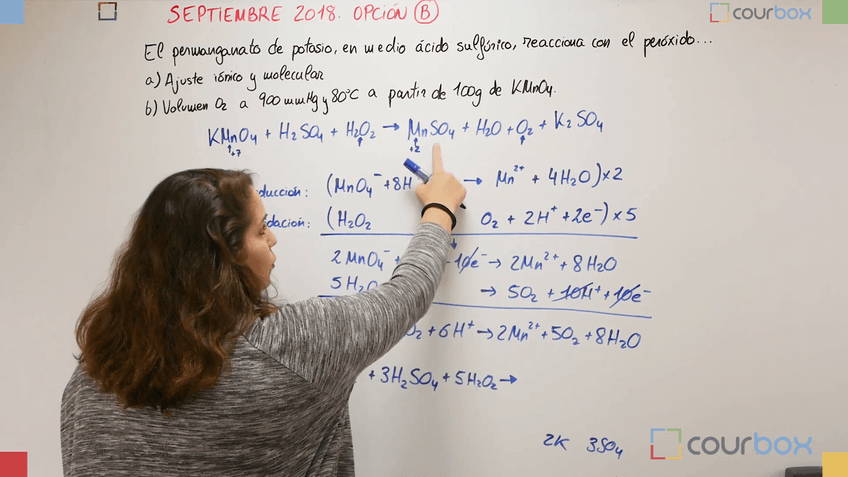 SEPTIEMBRE 2018. OPCIÓN B
courbox
El permanganato de potasio, en medio ácido sulfúrico, reacciona con el peróxido...
a) Ajuste iónico y molecular
b) Volumen O₂ a 900 mmHg y 80ºC a partir de 100g de KMnO₄.
KMnO₄ + H₂SO₄ + H₂O₂ → MnSO₄ + H₂O + O₂ + K₂SO₄
+7 +2
ducción: (MnO₄⁻ + 8H → Mn²⁺ + 4H₂O) × 2
dación: (H₂O₂ O₂ + 2H⁺ + 2e⁻) × 5
2 MnO₄⁻ + 10e⁻ → 2Mn²⁺ + 8H₂O
5H₂O → 5O₂ + 10H⁺ + 10e⁻
O₂ + 6H⁺ → 2Mn²⁺ + 5O₂ + 8H₂O
+ 3H₂SO₄ + 5H₂O₂ →
2K 3SO₄
courbox